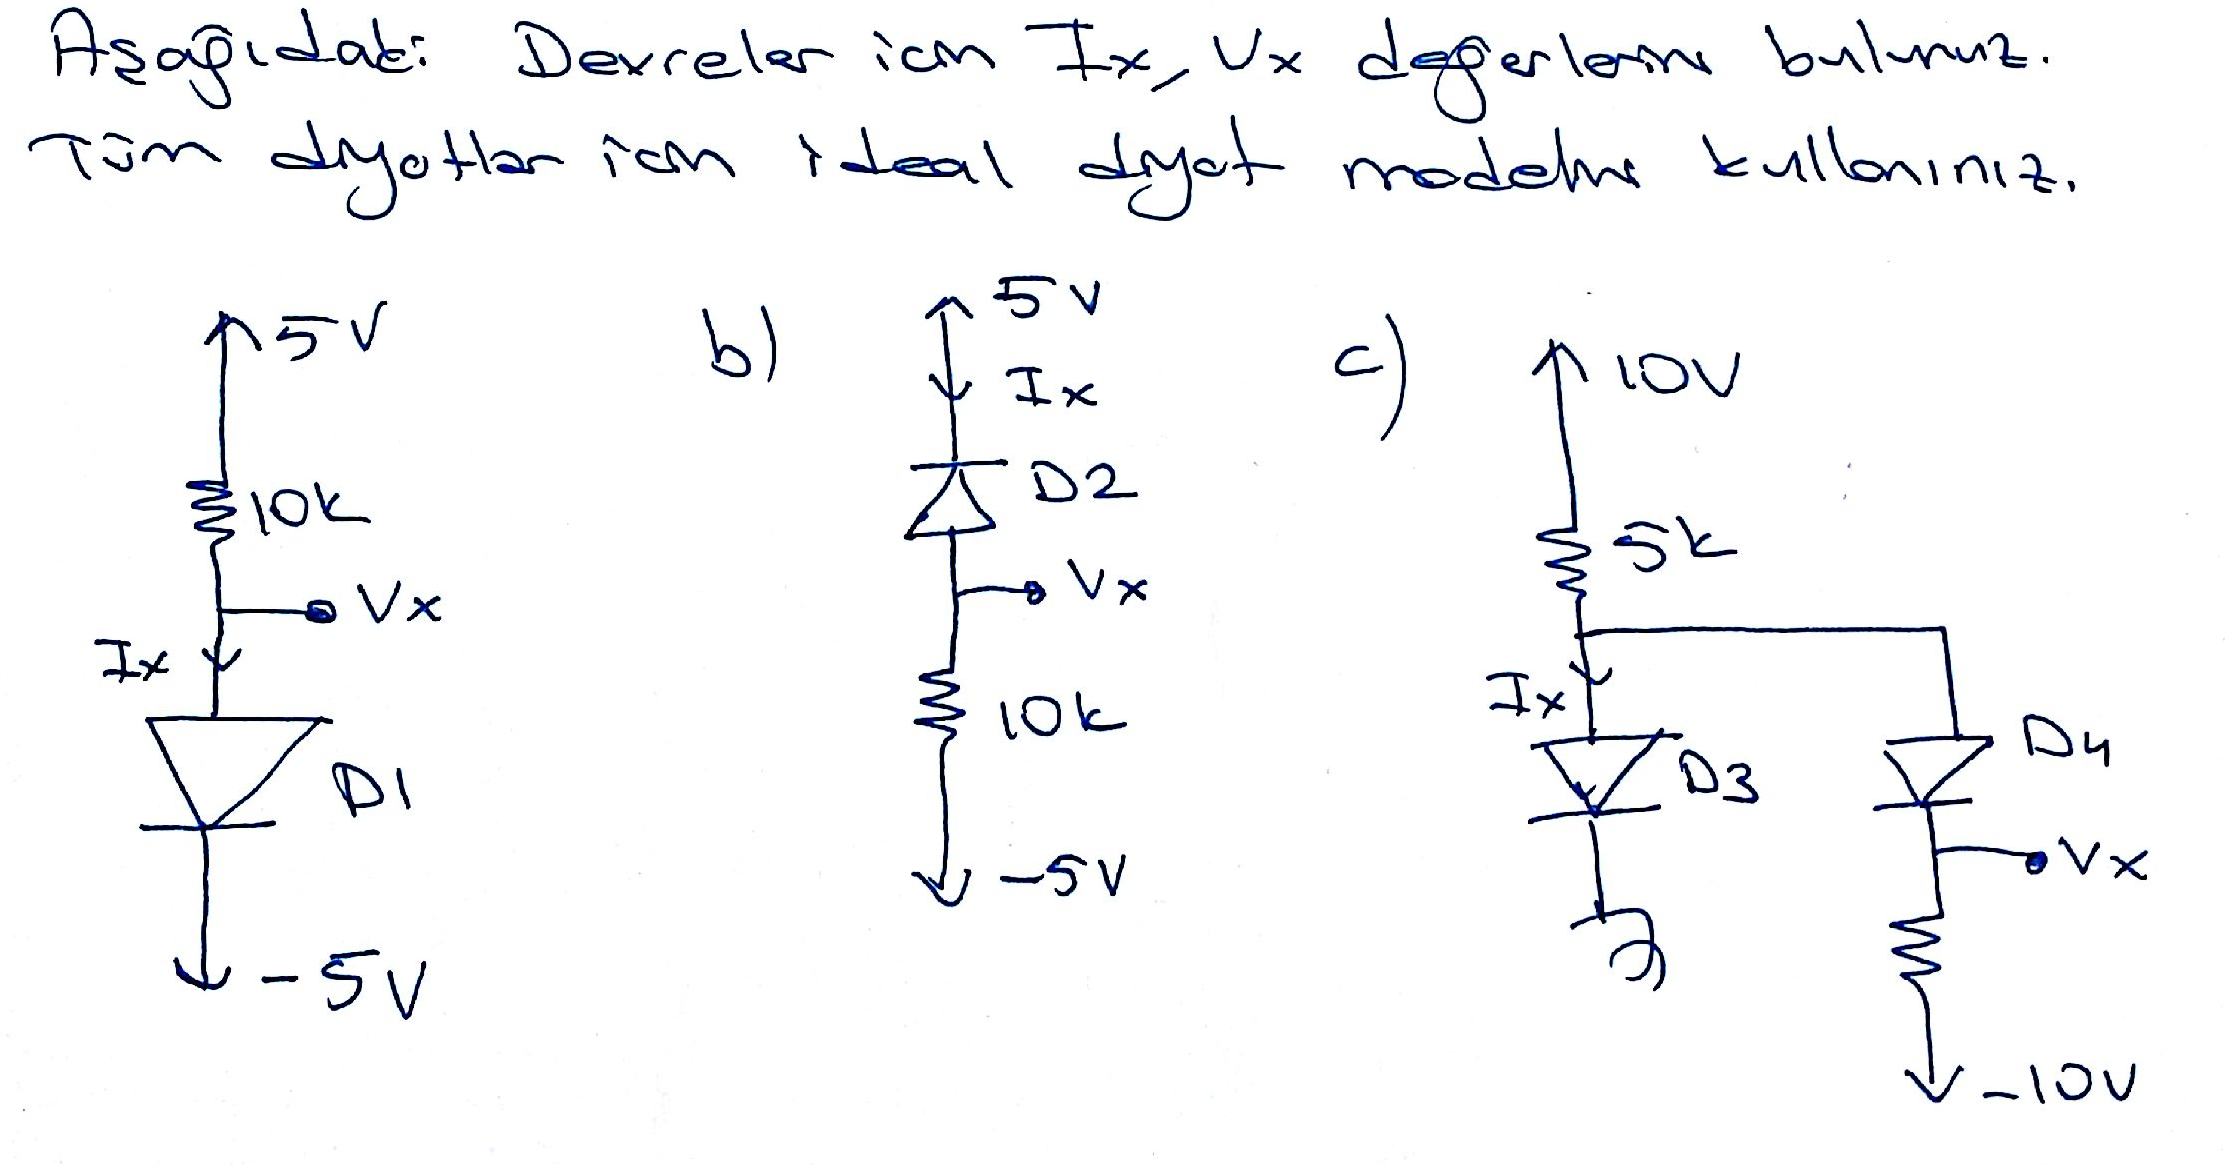 Aşağıdaki Devreler için Ix, Vx değerlerini bulunuz.
Tüm diyotlar için ideal diyot modelini kullanınız.
5V
10k
Vx
Ix
D1
-5V
b)
5V
Ix
D2
Vx
10k
-5V
c)
10V
5k
Ix
D3
D4
Vx
-10V